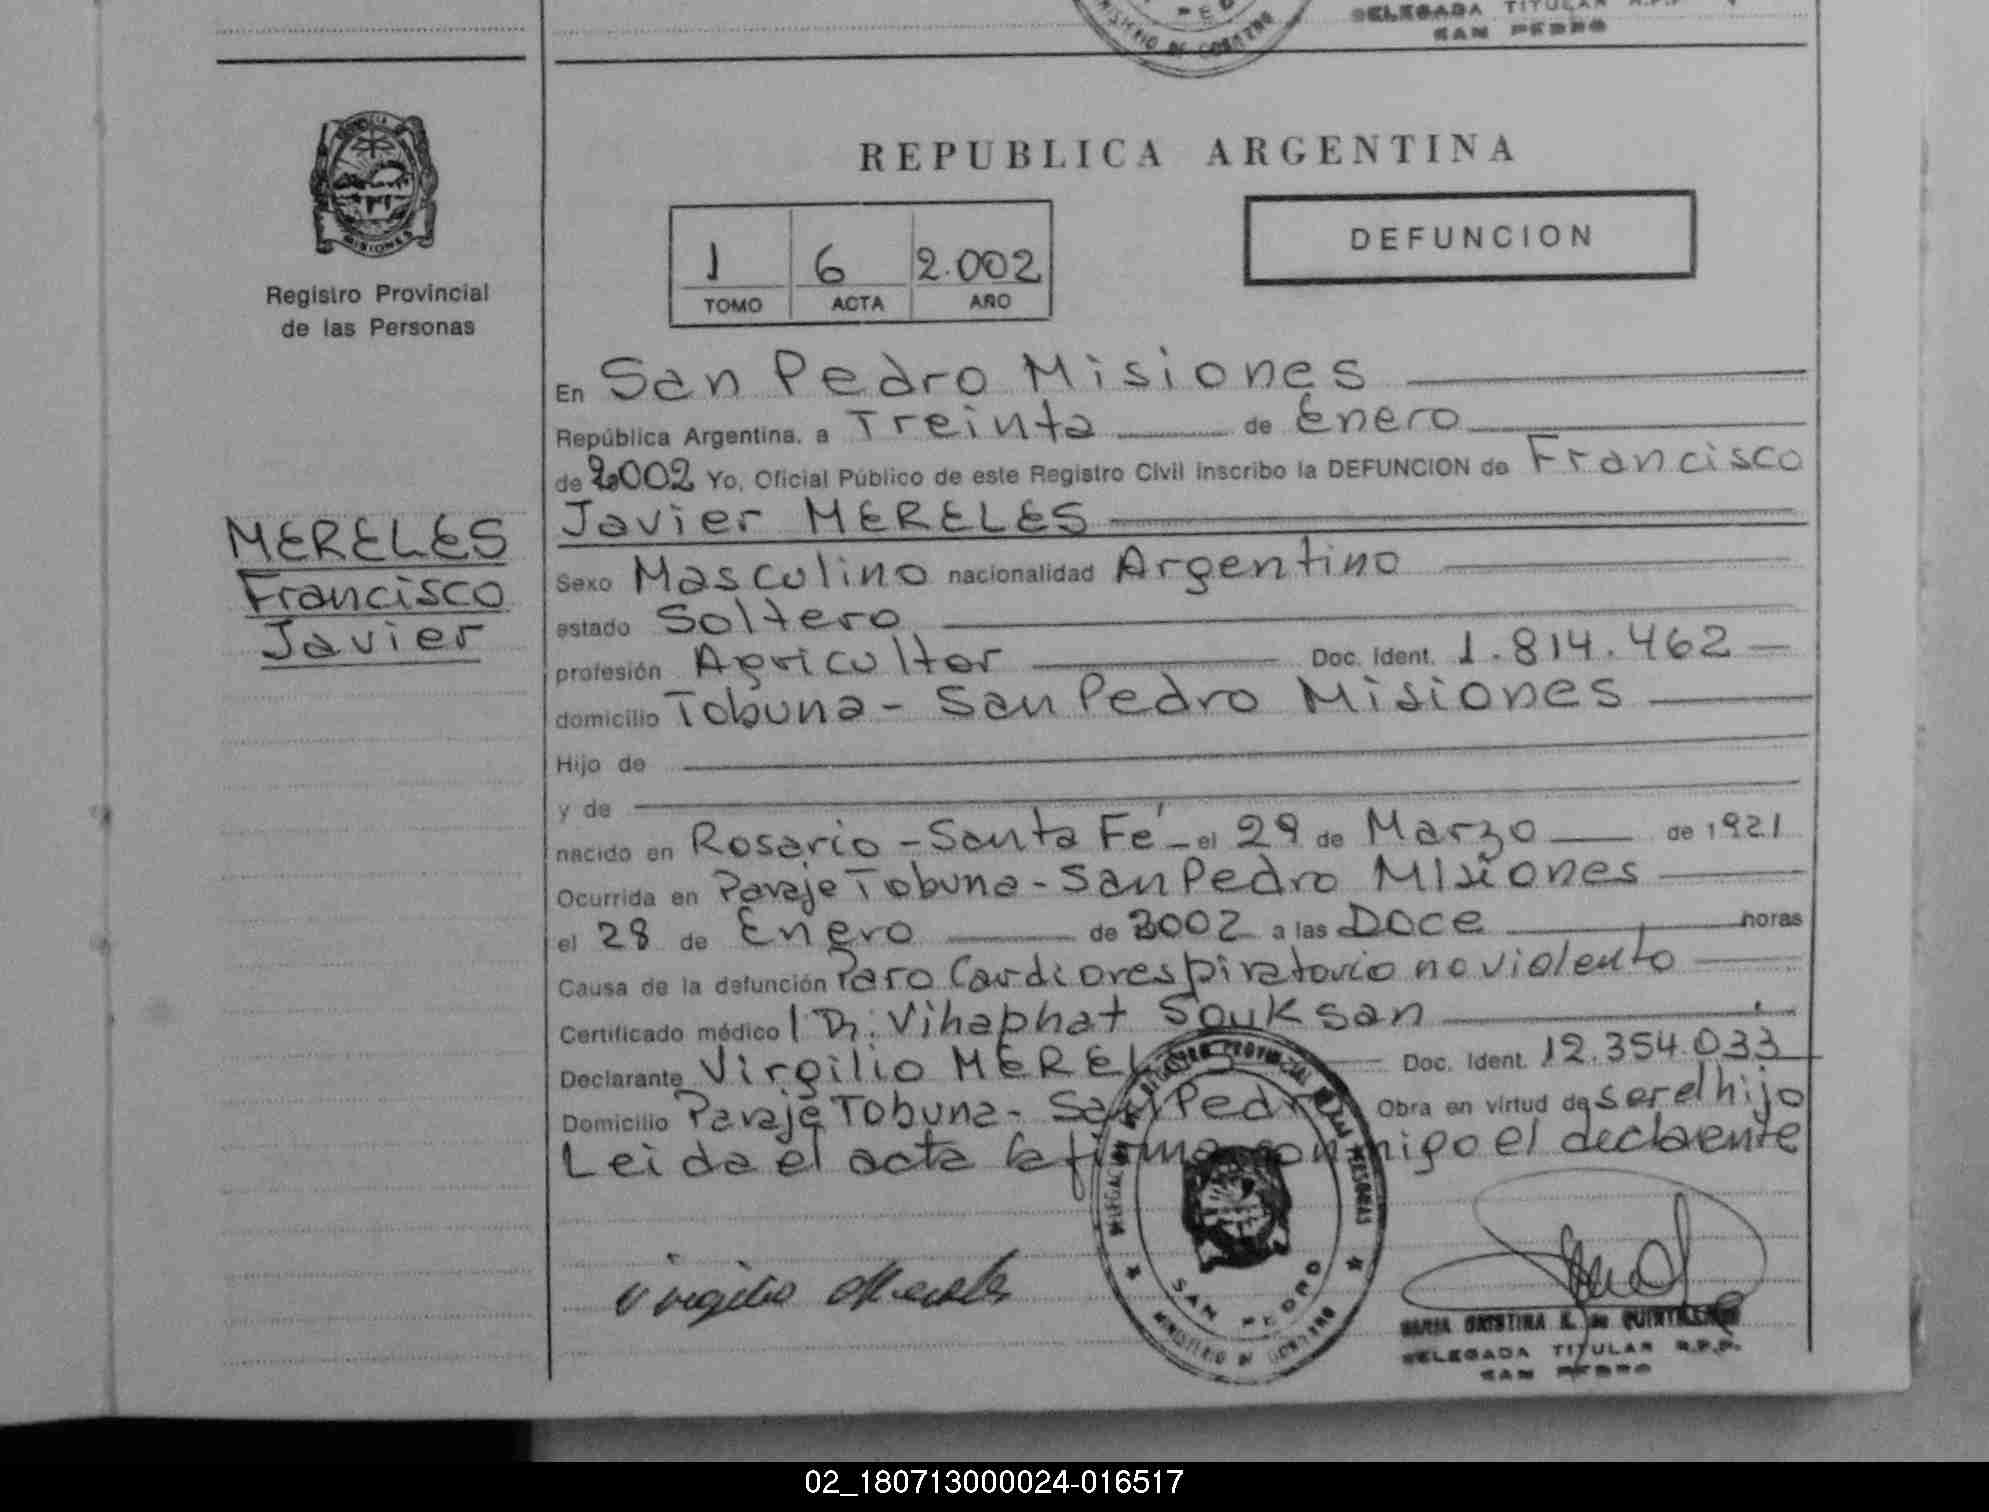 DELEGADA TITULAR R.P.P.
SAN PEDRO
MINISTERIO DE GOBIERNO
PROVINCIA DE
MISIONES
Registro Provincial
de las Personas
REPUBLICA ARGENTINA
1 6 2.002
TOMO ACTA AÑO
DEFUNCION
En San Pedro Misiones
República Argentina, a Treinta de Enero
de 2002 Yo, Oficial Público de este Registro Civil inscribo la DEFUNCION de Francisco
Javier MERELES
MERELES
Francisco
Javier
Sexo Masculino nacionalidad Argentino
estado Soltero
profesión Agricultor Doc. Ident. 1.814.462
domicilio Tobuna - San Pedro Misiones
Hijo de
y de
nacido en Rosario - Santa Fé - el 29 de Marzo de 1921
Ocurrida en Paraje Tobuna - San Pedro Misiones
el 28 de Enero de 2002 a las Doce horas
Causa de la defunción Paro Cardiorespiratorio no violento
Certificado médico Dr. Vihaphat Souksan
Declarante Virgilio MERELES Doc. Ident. 12.354.033
Domicilio Paraje Tobuna - San Pedro Obra en virtud de ser el hijo
Leida el acta la firma conmigo el declarente
Virgilio Mereles
DELEGACION DEL REGISTRO PROVINCIAL DE LAS PERSONAS
SAN PEDRO
MINISTERIO DE GOBIERNO
MARIA CRISTINA K. de
DELEGADA TITULAR R.P.P.
SAN PEDRO
02_180713000024-016517